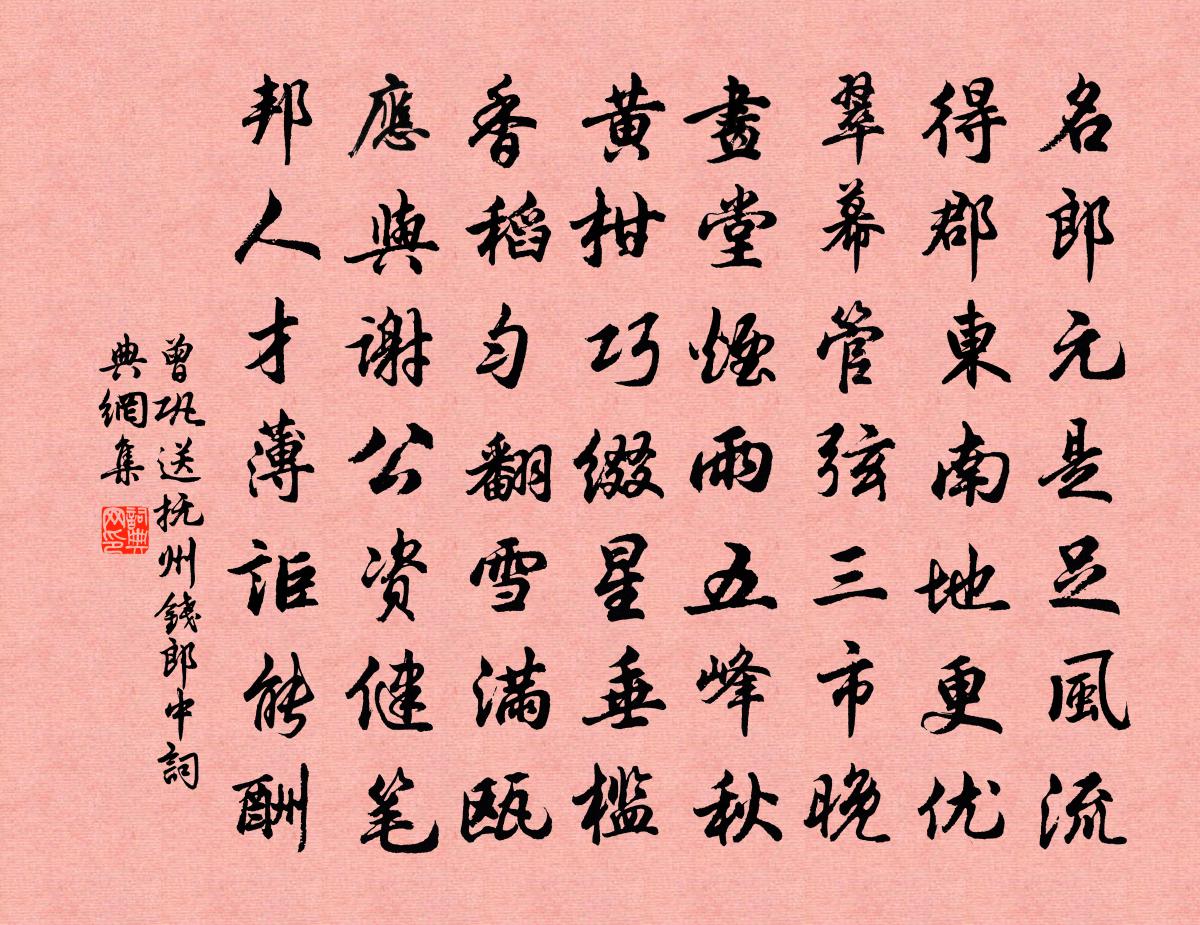 名郎元是足風流
得郡東南地更优
翠幕管弦三市晚
畫堂煙雨五峰秋
黄柑巧綴星垂槛
香稻匀翻雪满瓯
應與謝公资健笔
邦人才薄詎能酬
曾巩送抚州錢郎中詞
典網集
詞典
网印